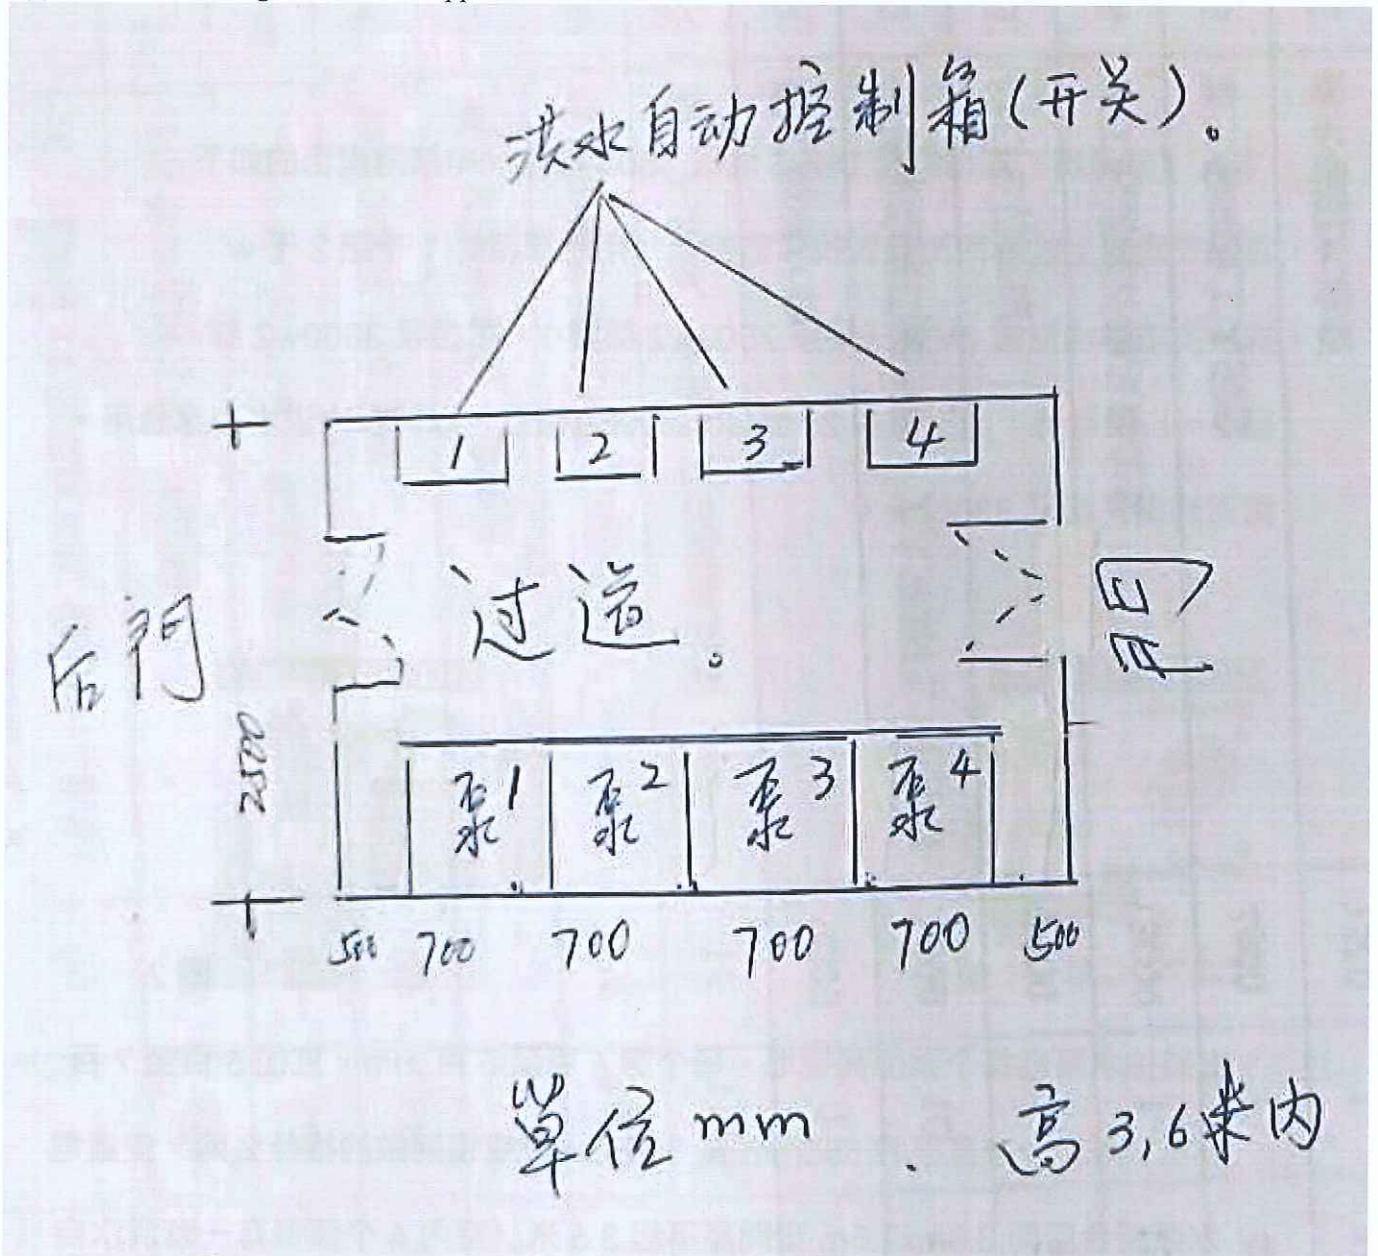 供水自动控制箱(开关)。
1 2 3 4
过道。
后門
門
2500
泵1 泵2 泵3 泵4
500 700 700 700 700 500
単位 mm . 高3,6米内